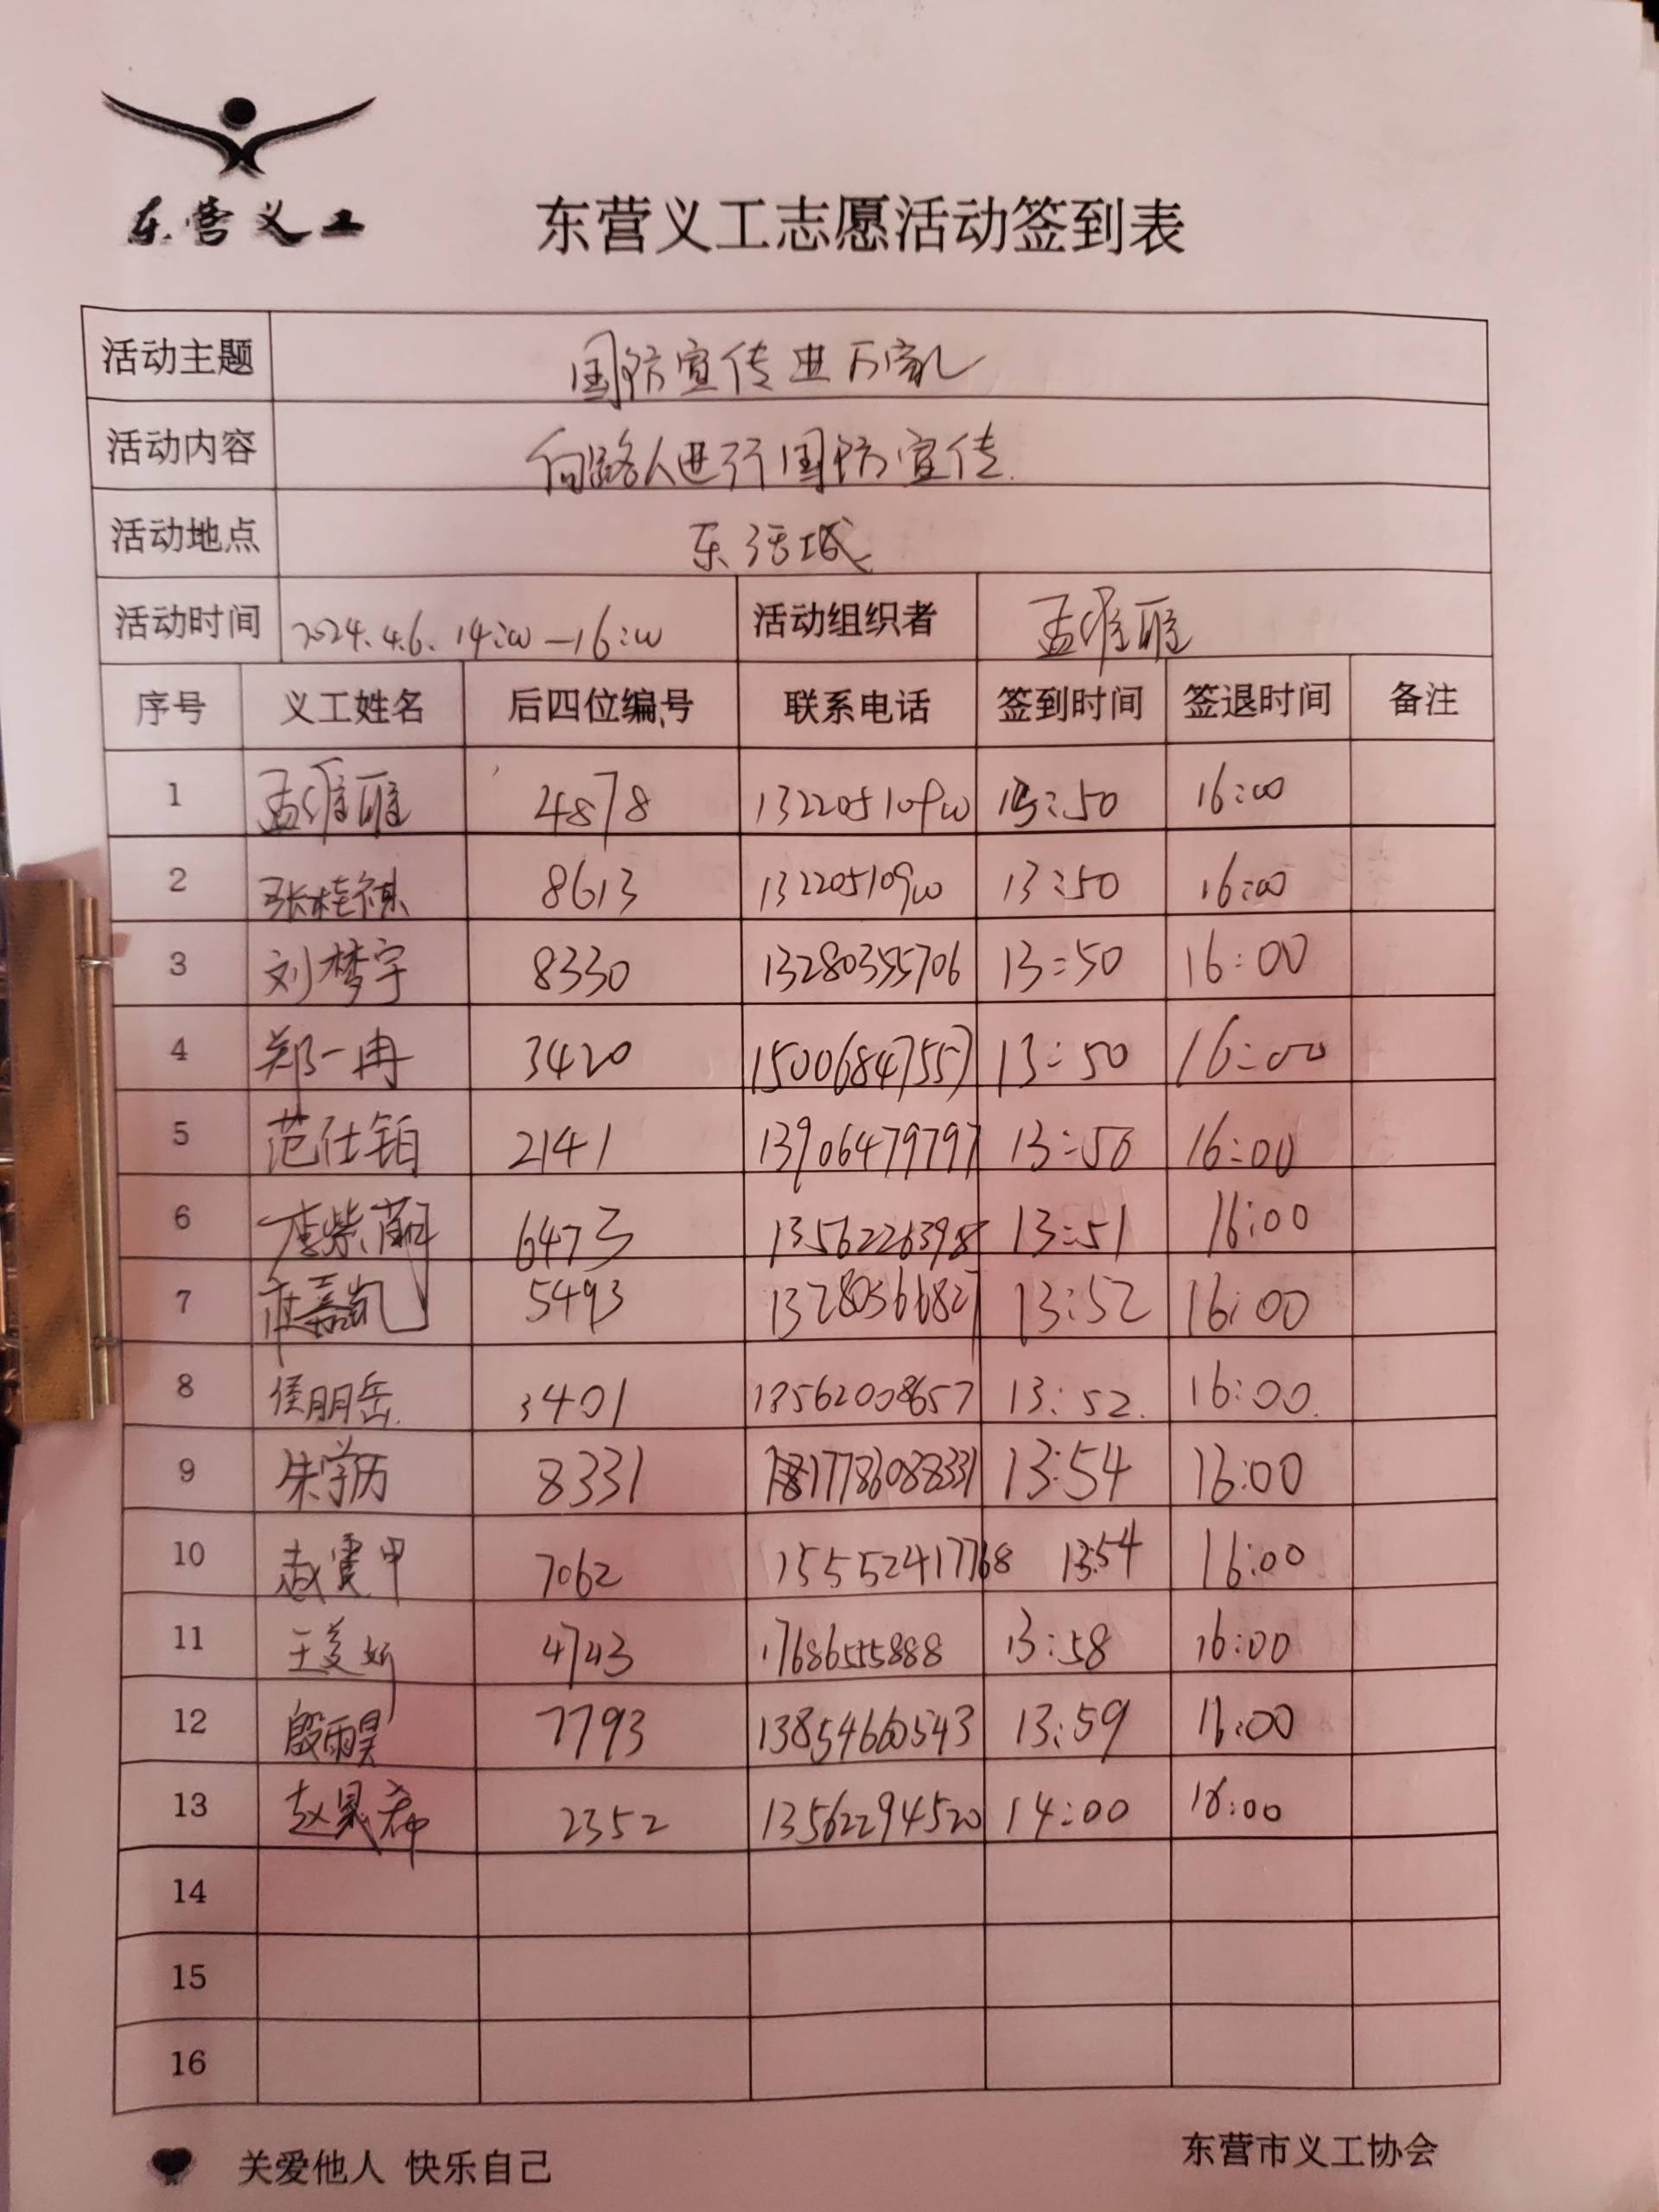 东营义工
东营义工志愿活动签到表
活动主题 国防宣传进万家
活动内容 向路人进行国防宣传.
活动地点 东活城
活动时间 2024.4.6. 14:00—16:00 活动组织者 孟雅雅
序号 义工姓名 后四位编号 联系电话 签到时间 签退时间 备注
1 4878 13:50 16:00
2 张桂祺 8613 13220510900 13:50 16:00
3 刘梦宇 8330 13280355706 13:50 16:00
4 郑一冉 3420 15006847557 13:50 16:00
5 范仕铂 2141 13906479797 13:50 16:00
6 李紫 6473 1356226398 13:51 16:00
7 嘉凯 5493 13280366827 13:52 16:00
8 侯朋岳 3401 13562008657 13:52. 16:00.
9 朱学历 8331 13:54 16:00
10 赵 甲 7062 15552417768 13:54 16:00
11 王 4743 17686555888 13:58 16:00
12 殷雨昊 7793 13854660543 13:59 16:00
13 赵 希 2352 13562294520 14:00 16:00
14
15
16
关爱他人 快乐自己 东营市义工协会